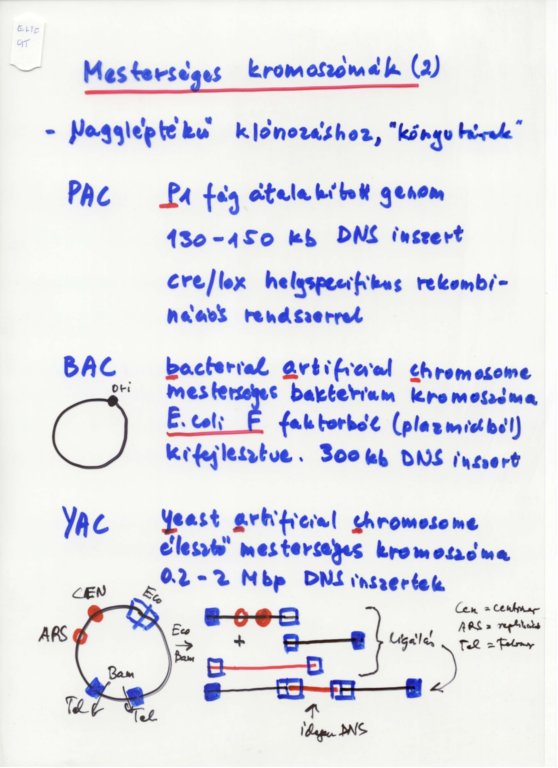 Mesterséges kromoszómák (2)
- Nagyléptékű klónozáshoz, "könyvtárak"
PAC P1 fág átalakított genom
130-150 kb DNS inszert
cre/lox helyspecifikus rekombi-
nációs rendszerrel
BAC bacterial artificial chromosome
ori
mesterséges baktérium kromoszóma
E.coli F faktorból (plazmidból)
kifejlesztve. 300 kb DNS inszert
YAC yeast artificial chromosome
élesztő mesterséges kromoszóma
0.2-2 Mbp DNS inszertek
CEN Eco
ARS
Bam
Tel Tel
Eco
Bam
+
Ligálás
idegen DNS
Cen =
ARS =
Tel =